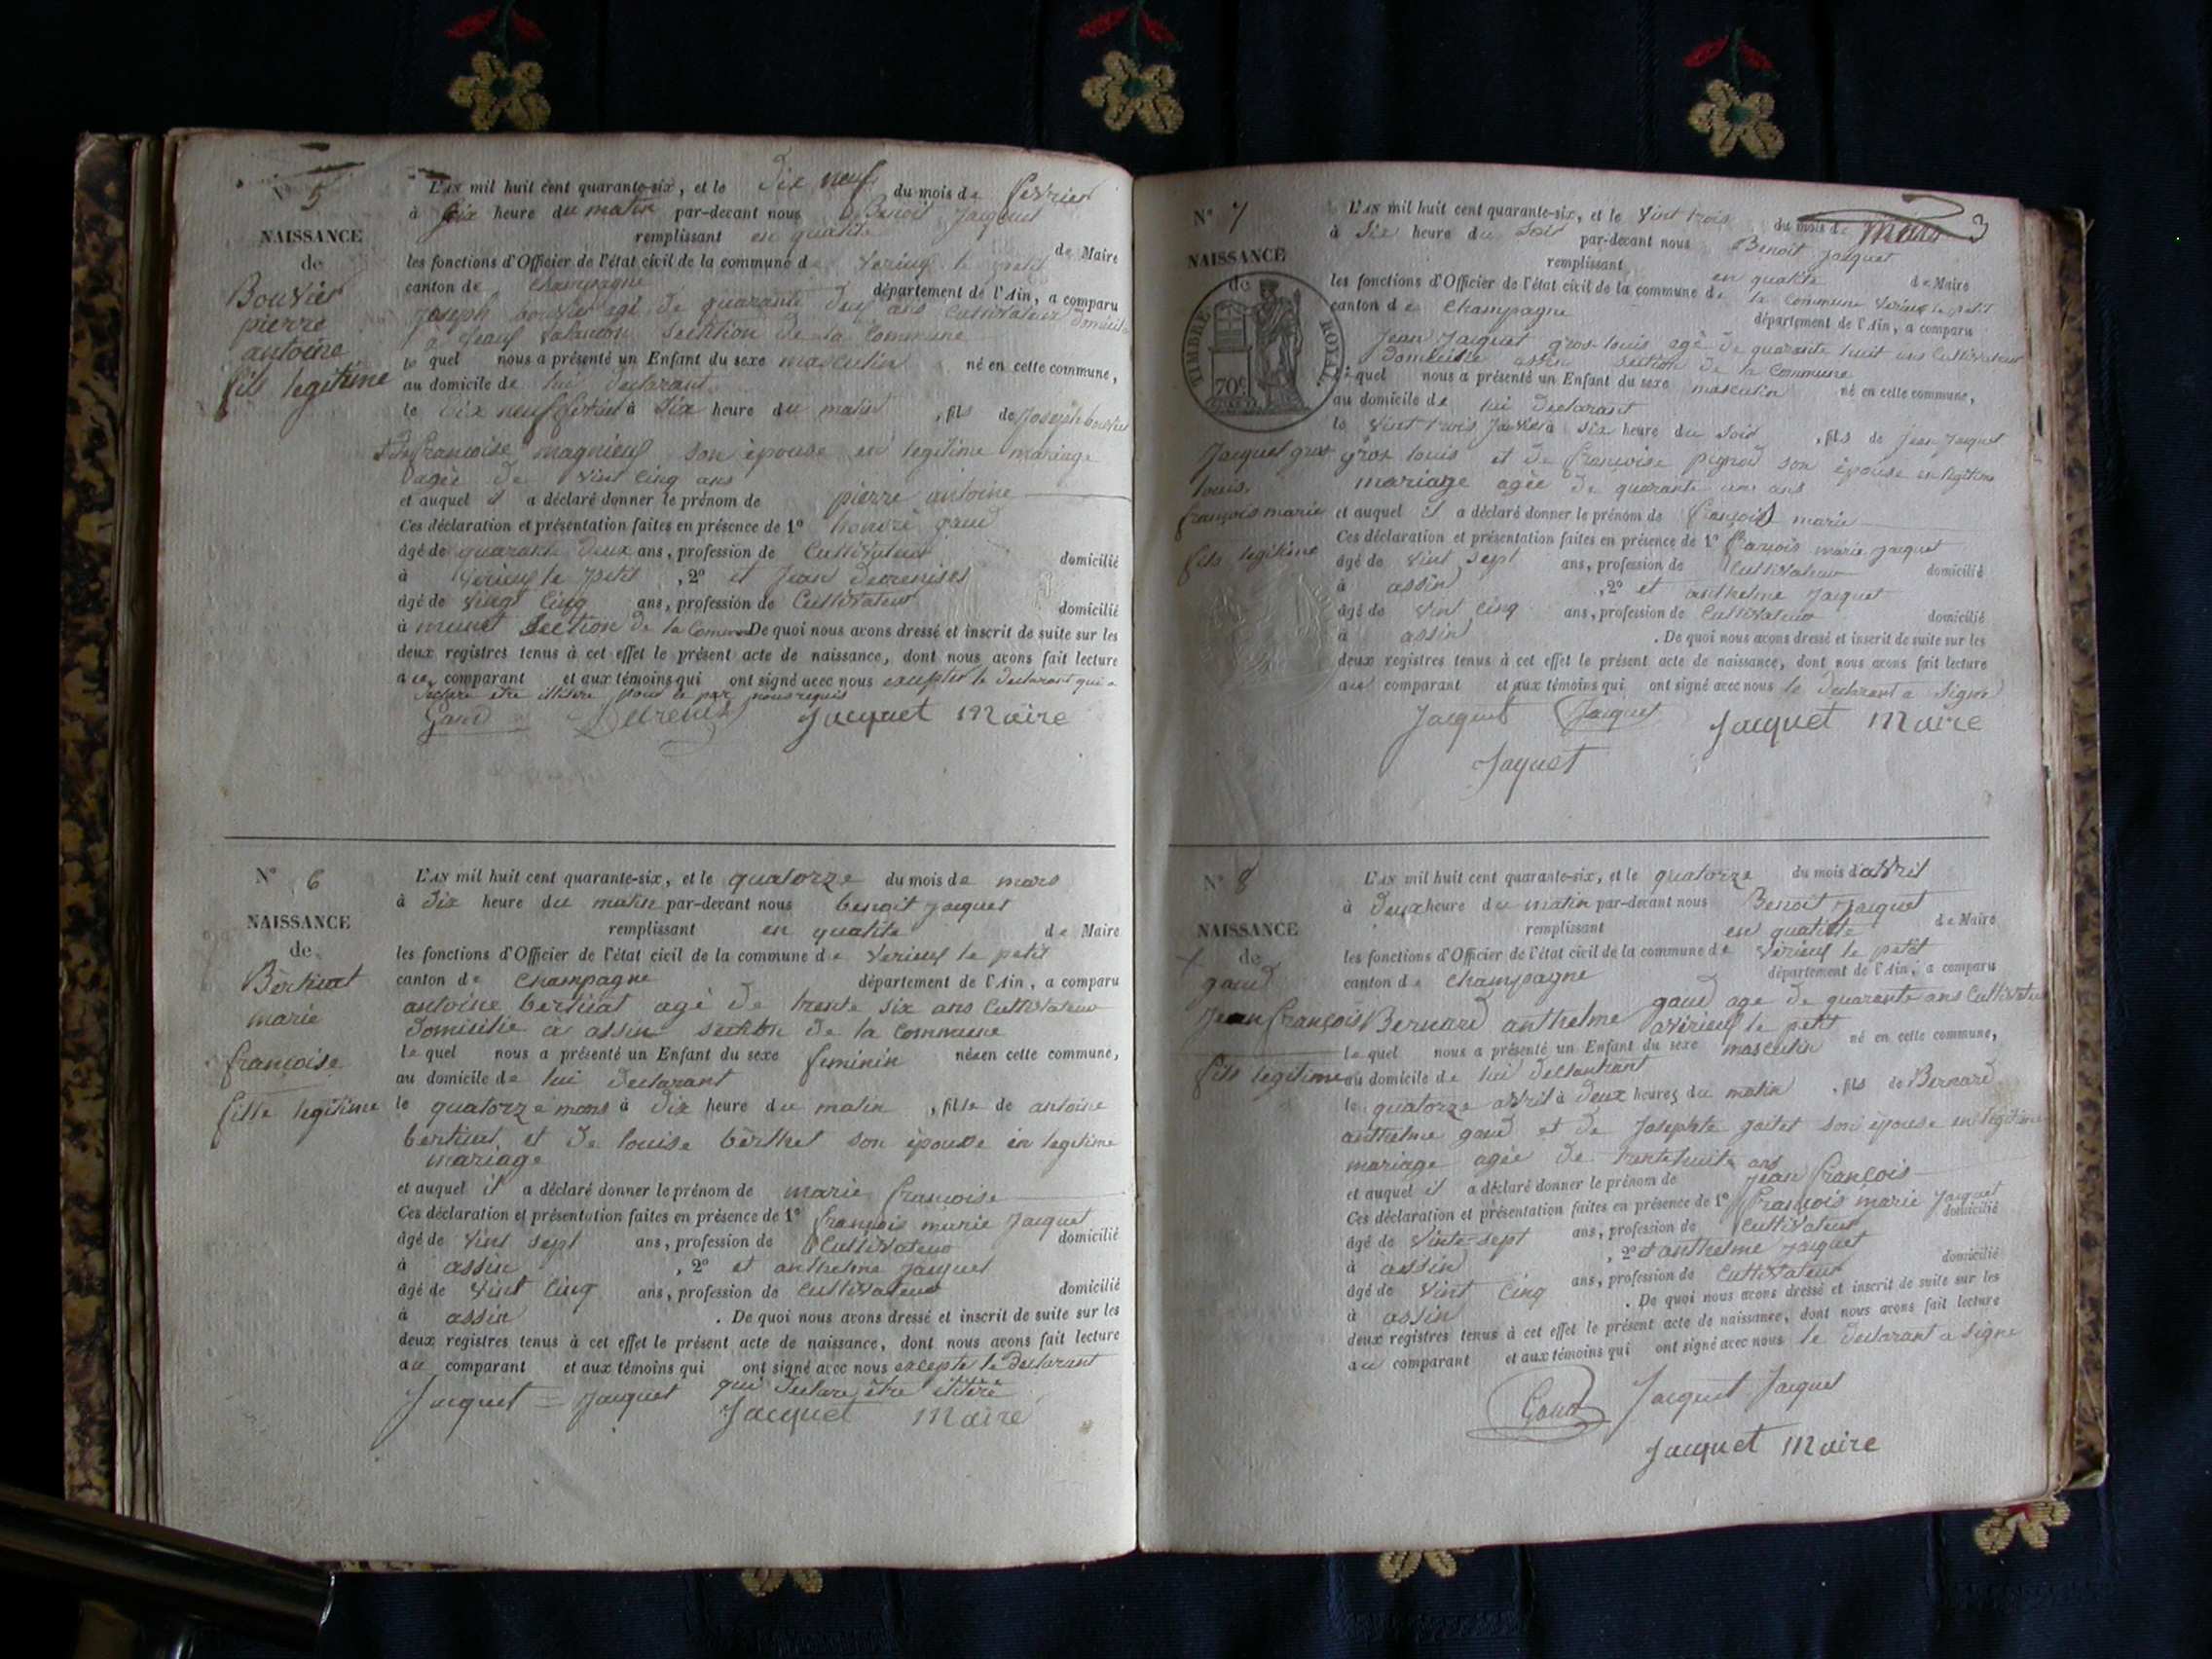 N° 5
NAISSANCE
de
Bouvier
pierre
antoine
fils legitime
L'AN mil huit cent quarante-six, et le dix neuf du mois de fevrier
à six heure du matin par-devant nous Benoit Jacquet
remplissant en qualité de Maire
les fonctions d'Officier de l'état civil de la commune de Verieux le petit
canton de Champagne département de l'Ain, a comparu
joseph bouvier agé de quarante deux ans Cultivateur domicilié
section de la Commune
le quel nous a présenté un Enfant du sexe masculin né en cette commune,
au domicile de lui declarant
le dix neuf fevrier à six heure du matin, fils de joseph bouvier
et de francoise magnieux son épouse en legitime mariage
agée de vint cinq ans
et auquel il a déclaré donner le prénom de pierre antoine
Ces déclaration et présentation faites en présence de 1° honoré gaud
âgé de quarante deux ans, profession de Cultivateur domicilié
à Verieux le petit, 2° et Jean
âgé de vingt cinq ans, profession de Cultivateur domicilié
à munet section de la Commune De quoi nous avons dressé et inscrit de suite sur les
deux registres tenus à cet effet le présent acte de naissance, dont nous avons fait lecture
au comparant et aux témoins qui ont signé avec nous excepter le declarant qui a
declaré etre illitere nous requis
Gaud Jacquet Maire
N° 6
NAISSANCE
de
Bertinat
marie
francoise
fille legitime
L'AN mil huit cent quarante-six, et le quatorze du mois de mars
à dix heure du matin par-devant nous benoit jacquet
remplissant en qualité de Maire
les fonctions d'Officier de l'état civil de la commune de Verieux le petit
canton de Champagne département de l'Ain, a comparu
antoine bertinat agé de trente six ans Cultivateur
domicilie à assin section de la Commune
le quel nous a présenté un Enfant du sexe feminin née en cette commune,
au domicile de lui declarant
le quatorze mars à dix heure du matin, fille de antoine
bertinat et de louise bérthet son épouse en legitime
mariage
et auquel il a déclaré donner le prénom de marie francoise
Ces déclaration et présentation faites en présence de 1° françois marie Jacquet
âgé de vint sept ans, profession de Cultivateur domicilié
à assin, 2° et anthelme jacquet
âgé de vint cinq ans, profession de Cultivateur domicilié
à assin. De quoi nous avons dressé et inscrit de suite sur les
deux registres tenus à cet effet le présent acte de naissance, dont nous avons fait lecture
au comparant et aux témoins qui ont signé avec nous excepte le declarant
qui declare être ilitéré
Jacquet Jacquet Jacquet Maire
N° 7
NAISSANCE
de
TIMBRE ROYAL
70c
Jacquet gros
louis
françois marie
fils legitime
L'AN mil huit cent quarante-six, et le vint trois du mois de mars
à six heure du soir par-devant nous Benoit jacquet
remplissant en qualité de Maire
les fonctions d'Officier de l'état civil de la commune de la Commune Verieux le petit
canton de Champagne département de l'Ain, a comparu
Jean Jacquet gros louis agé de quarante huit ans Cultivateur
domicilié assin section de la Commune
le quel nous a présenté un Enfant du sexe masculin né en cette commune,
au domicile de lui declarant
le vint trois à six heure du soir, fils de jean jacquet
gros louis et de francoise pignod son épouse en legitime
mariage agée de quarante une ans
et auquel il a déclaré donner le prénom de françois marie
Ces déclaration et présentation faites en présence de 1° françois marie jacquet
âgé de vint sept ans, profession de Cultivateur domicilié
à assin, 2° et anthelme jacquet
âgé de vint cinq ans, profession de Cultivateur domicilié
à assin. De quoi nous avons dressé et inscrit de suite sur les
deux registres tenus à cet effet le présent acte de naissance, dont nous avons fait lecture
au comparant et aux témoins qui ont signé avec nous le declarant a signé
Jacquet Jacquet Jacquet Maire
Jaquet
N° 8
NAISSANCE
de
gaud
Jean françois
fils legitime
L'AN mil huit cent quarante-six, et le quatorze du mois d'avril
à deux heure du matin par-devant nous Benoit Jacquet
remplissant en qualitte de Maire
les fonctions d'Officier de l'état civil de la commune de Vérieux le petit
canton de Champagne département de l'Ain, a comparu
Bernard anthelme gaud age de quarante ans Cultivateur
avérieux le petit
le quel nous a présenté un Enfant du sexe masculin né en cette commune,
au domicile de lui
le quatorze avril à deux heures du matin, fils de Bernard
anthelme gaud et de Josephte goitet son épouse en legitime
mariage agée de trente huit ans
et auquel il a déclaré donner le prénom de Jean françois
Ces déclaration et présentation faites en présence de 1° françois marie jacquet
âgé de vinte sept ans, profession de Cultivateur domicilié
à assin, 2° et anthelme jacquet
âgé de vint cinq ans, profession de Cultivateur domicilié
à assin. De quoi nous avons dressé et inscrit de suite sur les
deux registres tenus à cet effet le présent acte de naissance, dont nous avons fait lecture
au comparant et aux témoins qui ont signé avec nous le declarant a signé
Gaud Jacquet Jacquet
Jacquet Maire